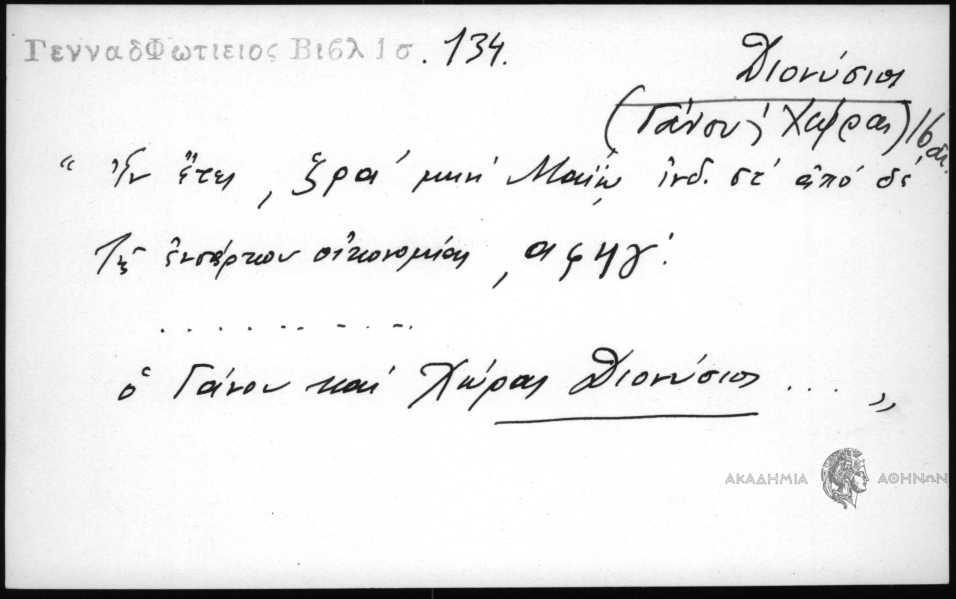 ΓενναδΦωτιειος Βιβλ 1σ. 134.
Διονύσιος
(Γάνου ϗ Χώρας) 16 αι.
“ Ἐν ἔτει, ζρα' μηνὶ Μαΐῳ ἰνδ. στ' ἀπό δέ
τῆς ἐνσάρκου οἰκονομίας, αφηγ'.
. . . . . . . . . .
ὁ Γάνου καί Χώρας Διονύσιος . . . „
ΑΚΑΔΗΜΙΑ ΑΘΗΝΩΝ